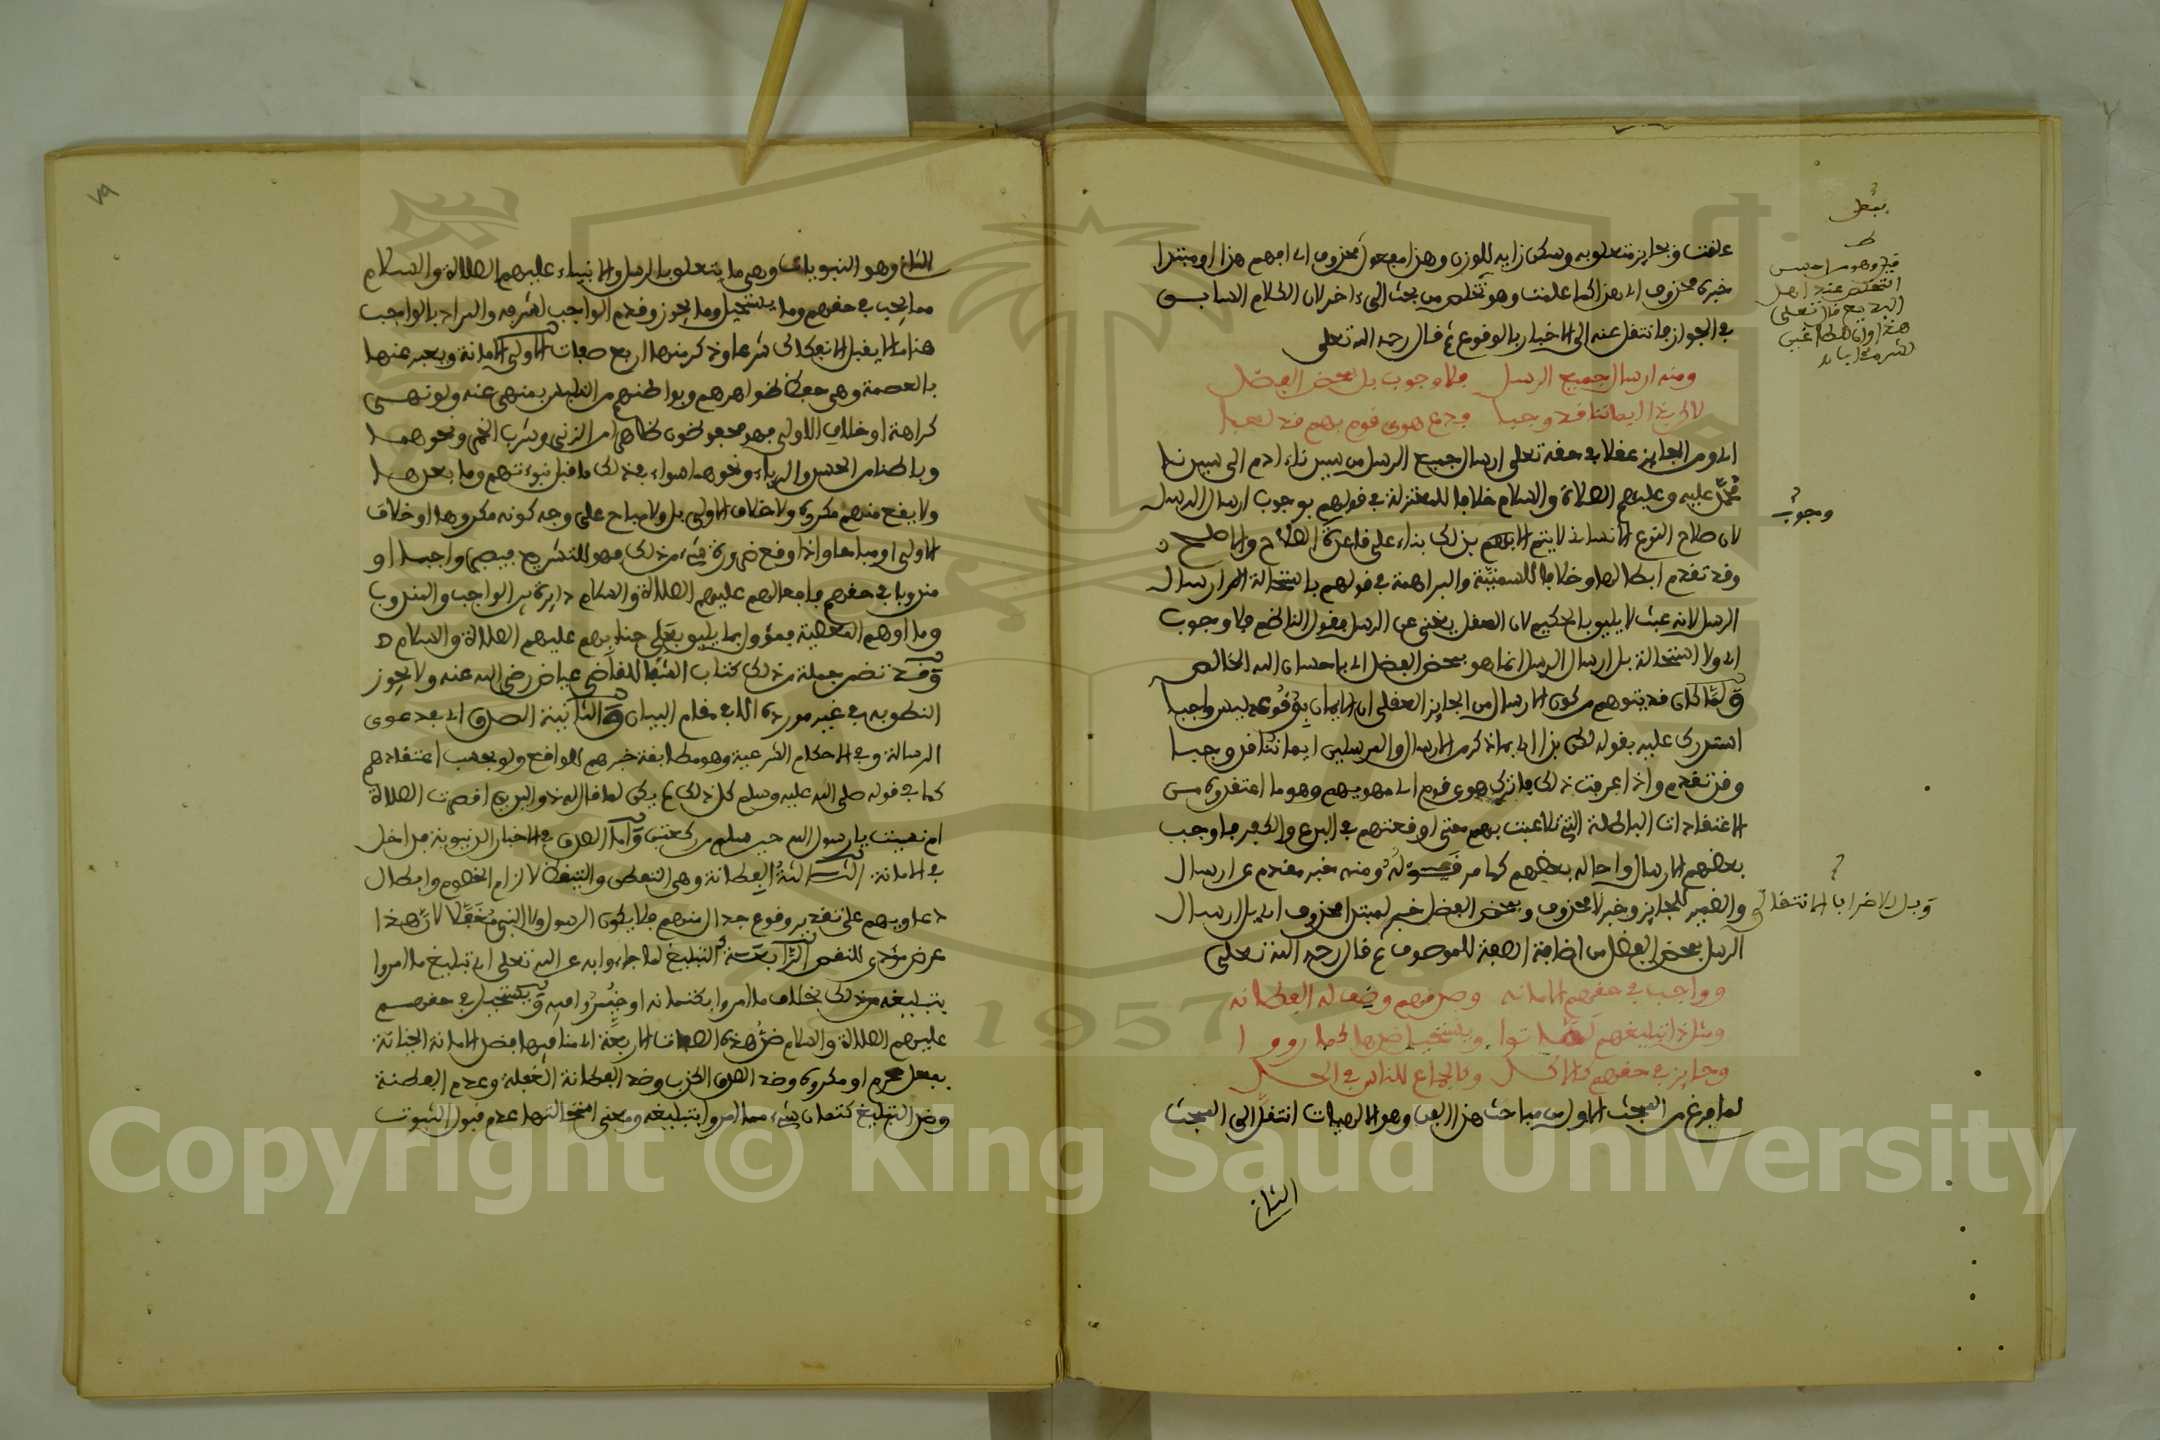 علقت وبجايز متعلق به وسكن زايه للوزن وهذا مفعول لمحذوف اي افهم هذا او مبتدا
خبره محذوف اي هذا كما علمت وهو تخلص من بحث الى ءاخر لان الكلام السابق
في الجواز فانتقل عنه الى الاخبار بالوقوع ثم قال رحمه الله تعلى
ومنه ارسال جميع الرسل فلا وجوب بل بمحض الفضل
لاكن بذا ايماننا قد وجبا فدع هوى قوم بهم قد لعبا
اي ومن الجايز عقلا في حقه تعلى ارسال جميع الرسل من سيدنا ءادم الى سيدنا
محمد عليه وعليهم الصلاة والسلام خلافا للمعتزلة في قولهم بوجوب ارسال الرسل
لان صلاح النوع الانساني لا يتم الا بهم بذلك بناء على قاعدة الصلاح والاصلح
وقد تقدم ابطالها وخلافا للسمنية والبراهمة في قولهم باستحالة ارسال
الرسل لانه عبث لا يليق بالحكيم لان العقل يغني عن الرسل فقول الناظم فلا وجوب
اي ولا استحالة بل ارسال الرسل انما هو بمحض الفضل اي باحسان الله الخالص
ولما كان قد يتوهم من كون الارسال من الجايز العقلي ان الايمان بوقوعه ليس واجبا
استدرك عليه بقوله لكن بذا اي بما ذكر من الارسال والمرسلين ايماننا قد وجبا
وقد تقدم واذا عرفت ذلك فاترك هوى قوم اي مهويهم وهو ما اعتقدوه من
الاعتقادات الباطلة التي تلاعبت بهم حتى اوقعتهم في البدع والكفر فاوجب
بعضهم الارسال واحاله بعضهم كما مر فقوله ومنه خبر مقدم عن ارسال
والضمير للجايز وخبر لا محذوف وبمحض الفضل خبر لمبتدا محذوف اي بل ارسال
الرسل بمحض الفضل من اضافة الصفة للموصوف ثم قال رحمه الله تعلى
وواجب في حقهم الامانه وصدقهم وضف له الفطانه
ومثل ذا تبليغهم لما اتوا ويستحيل ضدها كما رووا
وجايز في حقهم كالاكل وكالجماع للنسا في الحل
لما فرغ من المبحث الاول من مباحث هذا الفن وهو الالهيات انتقل الى المبحث
الثاني
وجوب
الثاني وهو النبويات وهي ما يتعلق بالرسل والانبياء عليهم الصلاة والسلام
مما يجب في حقهم وما يستحيل وما يجوز وقدم الواجب لشرفه والمراد بالواجب
هنا ما لا يقبل الانفكاك شرعا وذكر منها اربع صفات الاولى الامانة ويعبر عنها
بالعصمة وهي حفظ ظواهرهم وبواطنهم من التلبس بمنهي عنه ولو نهي
كراهة او خلاف الاولى فهم محفوظون ظاهرا من الزنى وشرب الخمر ونحوهما
وباطنا من الحسد والرياء ونحوهما سواء في ذلك ما قبل نبوءتهم وما بعدها
ولا يقع منهم مكروه ولا خلاف الاولى بل ولا مباح على وجه كونه مكروها او خلاف
الاولى او مباحا واذا وقع ضرورة شيء من ذلك فهو للتشريع فيصير واجبا او
مندوبا في حقهم فافعالهم عليهم الصلاة والسلام دايرة بين الواجب والمندوب
وما اوهم المعصية فمؤول بما يليق بعلي جنابهم عليهم الصلاة والسلام
وقد تضمن جملة من ذلك كتاب الشفا للقاضي عياض رضي الله عنه ولا يجوز
النطق به في غير مورده الا في مقام البيان والثانية الصدق اي في دعوى
الرسالة وفي الاحكام الشرعية وهو مطابقة خبرهم للواقع ولو بحسب اعتقادهم
كما في قوله صلى الله عليه وسلم كل ذلك لم يكن لما قال له ذو اليدين اقصرت الصلاة
ام نسيت يا رسول الله حين سلم من ركعتين واما الصدق في الاخبار الدنيوية فداخل
في الامانة. الثالثة الفطانة وهي التفطن والتيقظ لالزام الخصوم وابطال
دعاويهم على تقدير وقوع جدال منهم فلا يكون الرسول ولا النبي مغفلا لان هذا
عرض مؤدي للنقص الرابعة التبليغ لما جاءوا به عن الله تعلى اي تبليغ ما امروا
بتبليغه من ذلك بخلاف ما امروا بكتمانه او خيروا فيه ويستحيل في حقهم
عليهم الصلاة والسلام ضد هذه الصفات الاربعة اي منافيها فضد الامانة الخيانة
بفعل محرم او مكروه وضد الصدق الكذب وضد الفطانة الغفلة وعدم الفطنة
وضد التبليغ كتمان شيء مما امروا بتبليغه ومعنى استحالتها عدم قبول الثبوت
٧٩
1957
Copyright © King Saud University